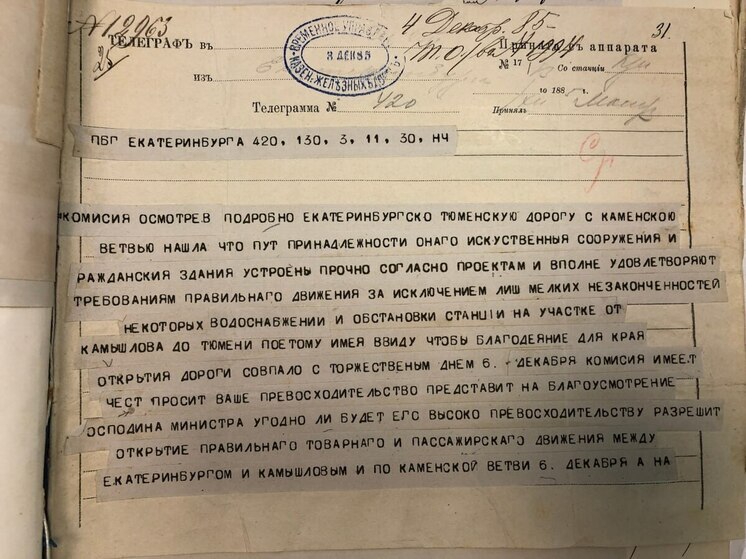 № 12963
4 Декр. 85
31.
ТЕЛЕГРАФЪ ВЪ
ВРЕМЕННОЕ УПРАВЛ.
3 ДЕК 85
КАЗЕН. ЖЕЛѢЗНЫХЪ ДОРОГЪ
Принята съ аппарата
25
ИЗЪ
№ 17
Со станціи
го 188 г.
Телеграмма № 420
Принялъ
ПБГ ЕКАТЕРИНБУРГА 420, 130, 3, 11, 30, НЧ
КОМИСИЯ ОСМОТРЕ.В ПОДРОБНО ЕКАТЕРИНБУРГСКО ТЮМЕНСКУЮ ДОРОГУ С КАМЕНСКОЮ
ВЕТВЬЮ НАШЛА ЧТО ПУТ ПРИНАДЛЕЖНОСТИ ОНАГО ИСКУСТВЕННЫЯ СООРУЖЕНИЯ И
РАЖДАНСКИЯ ЗДАНИЯ УСТРОЕНЫ ПРОЧНО СОГЛАСНО ПРОЕКТАМ И ВПОЛНЕ УДОВЛЕТВОРЯЮТ
ТРЕБОВАНИЯМ ПРАВИЛЬНАГО ДВИЖЕНИЯ ЗА ИСКЛЮЧЕНИЕМ ЛИШ МЕЛКИХ НЕЗАКОНЧЕННОСТЕЙ
НЕКОТОРЫХ ВОДОСНАБЖЕНИИ И ОБСТАНОВКИ СТАНЦІИ НА УЧАСТКЕ ОТ
КАМЫШЛОВА ДО ТЮМЕНИ ПОЕТОМУ ИМЕЯ ВВИДУ ЧТОБЫ БЛАГОДЕЯНИЕ ДЛЯ КРАЯ
ОТКРЫТИЯ ДОРОГИ СОВПАЛО С ТОРЖЕСТВЕНЫМ ДНЕМ 6. ДЕКАБРЯ КОМИСИЯ ИМЕ.Т
ЧЕСТ ПРОСИТ ВАШЕ ПРЕВОСХОДИТЕЛЬСТВО ПРЕДСТАВИТ НА БЛАГОУСМОТРЕНИЕ
ОСПОДИНА МИНИСТРА УГОДНО ЛИ БУДЕТ ЕГО ВЫСОКО ПРЕВОСХОДИТЕЛЬСТВУ РАЗРЕШИТ
ОТКРЫТИЕ ПРАВИЛЬНАГО ТОВАРНАГО И ПАССАЖИРСКАГО ДВИЖЕНИЯ МЕЖДУ
Е.КАТЕРИНБУРГОМ И КАМЫШЛОВЫМ И ПО КАМЕНСКОЙ ВЕТВИ 6. ДЕКАБРЯ А НА